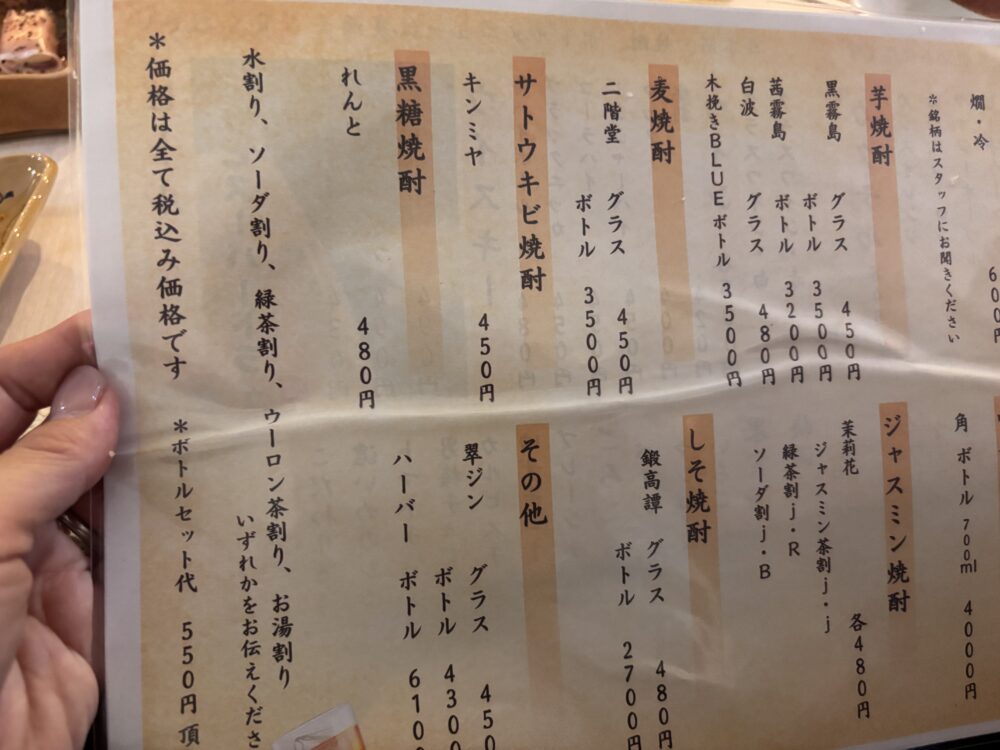 燗・冷 600円
*銘柄はスタッフにお聞きください
芋焼酎
黒霧島 グラス 450円
ボトル 3500円
茜霧島 ボトル 3200円
白波 グラス 480円
木挽きBLUE ボトル 3500円
麦焼酎
二階堂 グラス 450円
ボトル 3500円
サトウキビ焼酎
キンミヤ 450円
黒糖焼酎
れんと 480円
角 ボトル 700ml 4000円
ジャスミン焼酎
茉莉花 各480円
ジャスミン茶割j・j
緑茶割j・R
ソーダ割j・B
しそ焼酎
鍛高譚 グラス 480円
ボトル 2700円
その他
翠ジン グラス 450
ボトル 430
ハーバー ボトル 610
水割り、ソーダ割り、緑茶割り、ウーロン茶割り、お湯割り
いずれかをお伝えくださ
*価格は全て税込み価格です *ボトルセット代 550円 頂